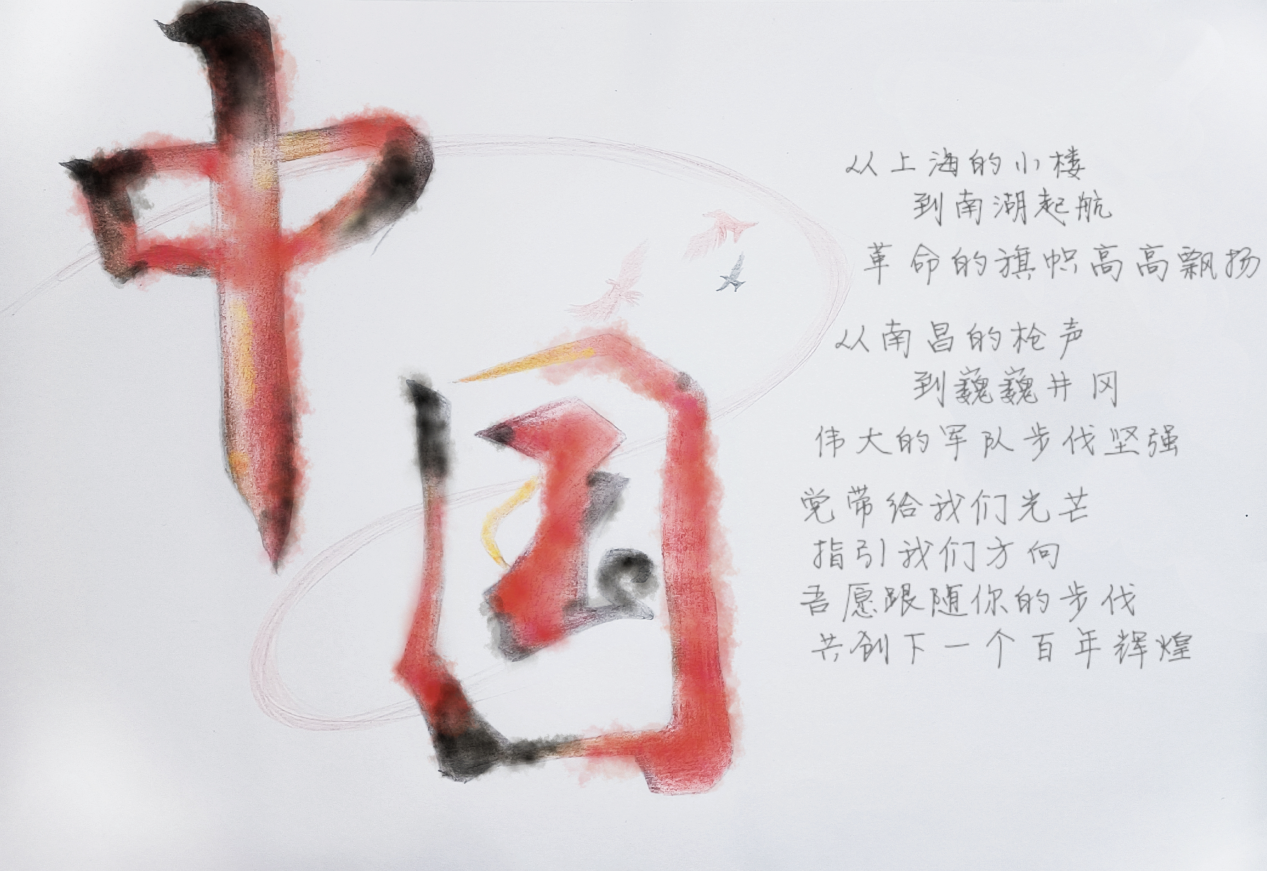 中国
从上海的小楼
到南湖起航
革命的旗帜高高飘扬
从南昌的枪声
到巍巍井冈
伟大的军队步伐坚强
党带给我们光芒
指引我们方向
吾愿跟随你的步伐
共创下一个百年辉煌